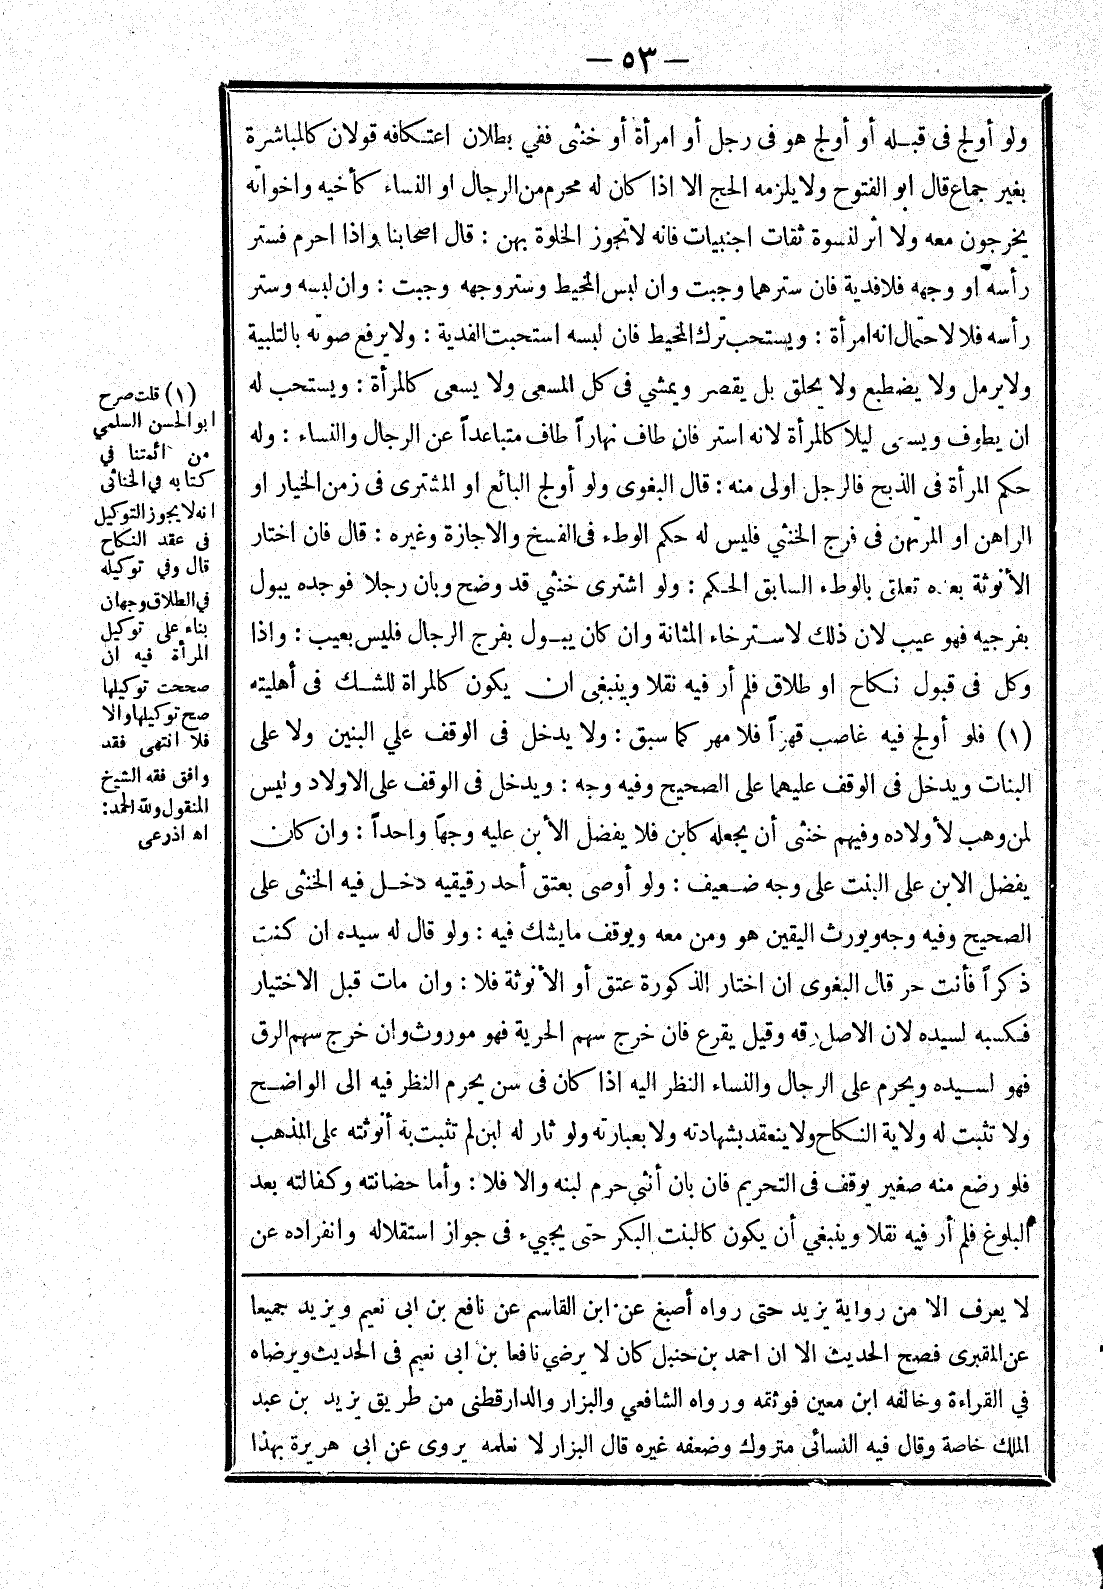 — ٥٣ —
ولو أولج فى قبله أو أولج هو فى رجل أو امرأة أو خنثى ففي بطلان اعتكافه قولان كالمباشرة
بغير جماع قال ابو الفتوح ولا يلزمه الحج الا اذا كان له محرم من الرجال او النساء كأخيه واخواته
يخرجون معه ولا اثر لنسوة ثقات اجنبيات فانه لا تجوز الخلوة بهن : قال اصحابنا واذا احرم فستر
رأسه او وجهه فلا فدية فان سترهما وجبت وان لبس المخيط وستر وجهه وجبت : وان لبسه وستر
رأسه فلا لاحتمال انه امرأة : ويستحب ترك المخيط فان لبسه استحبت الفدية : ولا يرفع صوته بالتلبية
ولا يرمل ولا يضطبع ولا يحلق بل يقصر ويمشي فى كل المسعى ولا يسعى كالمرأة : ويستحب له
ان يطوف ويسعى ليلا كالمرأة لانه استر فان طاف نهاراً طاف متباعداً عن الرجال والنساء : وله
حكم المرأة فى الذبح فالرجل اولى منه : قال البغوى ولو أولج البائع او المشترى فى زمن الخيار او
الراهن او المرتهن فى فرج الخنثي فليس له حكم الوطء فى الفسخ والاجازة وغيره : قال فان اختار
الأنوثة بعده تعلق بالوطء السابق الحكم : ولو اشترى خنثي قد وضح وبان رجلا فوجده يبول
بفرجيه فهو عيب لان ذلك لاسترخاء المثانة وان كان يبول بفرج الرجال فليس بعيب : واذا
وكل فى قبول نكاح او طلاق فلم أر فيه نقلا وينبغى ان يكون كالمرأة للشك فى أهليته
(١) فلو أولج فيه غاصب قهراً فلا مهر كما سبق : ولا يدخل فى الوقف علي البنين ولا على
البنات ويدخل فى الوقف عليهما على الصحيح وفيه وجه : ويدخل فى الوقف على الاولاد وليس
لمن وهب لأولاده وفيهم خنثى أن يجعله كابن فلا يفضل الأبن عليه وجهاً واحداً : وان كان
يفضل الابن على البنت على وجه ضعيف : ولو أوصى بعتق أحد رقيقيه دخل فيه الخنثى على
الصحيح وفيه وجه ويورث اليقين هو ومن معه ويوقف ما يشك فيه : ولو قال له سيده ان كنت
ذكراً فأنت حر قال البغوى ان اختار الذكورة عتق أو الأنوثة فلا : وان مات قبل الاختيار
فكسبه لسيده لان الاصل رقه وقيل يقرع فان خرج سهم الحرية فهو موروث وان خرج سهم الرق
فهو لسيده ويحرم على الرجال والنساء النظر اليه اذا كان فى سن يحرم النظر فيه الى الواضح
ولا تثبت له ولاية النكاح ولا ينعقد بشهادته ولا بعبارته ولو ثار له لبن لم تثبت به أنوثته على المذهب
فلو رضع منه صغير يوقف فى التحريم فان بان أنثي حرم لبنه والا فلا : وأما حضانته وكفالته بعد
البلوغ فلم أر فيه نقلا وينبغي أن يكون كالبنت البكر حتى يجيىء فى جواز استقلاله وانفراده عن
(١) قلت صرح
ابو الحسن السلمي
من أئمتنا في
كتابه في الخناثى
انه لا يجوز التوكيل
فى عقد النكاح
قال وفي توكيله
في الطلاق وجهان
بناء على توكيل
المرأة فيه ان
صححت توكيلها
صح توكيلها والا
فلا انتهى فقد
وافق فقه الشيخ
المنقول ولله الحمد :
اه اذرعى
لا يعرف الا من رواية يزيد حتى رواه أصبغ عن ابن القاسم عن نافع بن ابى نعيم ويزيد جميعا
عن المقبرى فصح الحديث الا ان احمد بن حنبل كان لا يرضي نافعا بن ابى نعيم فى الحديث ويرضاه
في القراءة وخالفه ابن معين فوثقه ورواه الشافعي والبزار والدارقطنى من طريق يزيد بن عبد
الملك خاصة وقال فيه النسائى متروك وضعفه غيره قال البزار لا نعلمه يروى عن ابى هريرة بهذا